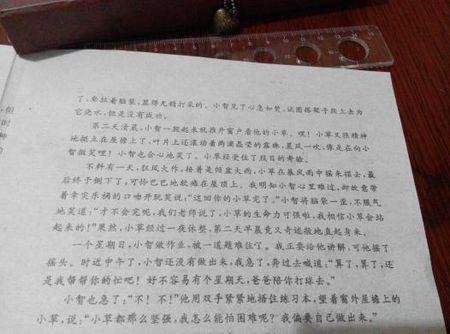 了，耷拉着脑袋，显得无精打采的。小智见了心急如焚，试图搭架子段上去为
它浇水，但是没有成功。
第二天清晨，小智一起起来就推开窗户看他的小草。嘿！小草又很精神
地挺立在屋檐上了，叶片上还滚动着两滴晶莹的露珠，晨风一吹，像是在向小
智微笑哩！小智也会心地笑了。小草经受住了烈日的考验。
不料有一天，狂风大作，接着是倾盆大雨，小草在暴风雨中摇来摇去，最
后终于倒下了，可怜巴巴地软瘫在屋顶上。我明知小智心里难过，却故意带
着幸灾乐祸的口吻开玩笑说：“这回你的小草完了。”小智将脑袋一歪，不服气
地笑道：“才不会完呢，我们老师说了，小草的生命力可强啦，我相信小草会站
起来的！”果然，小草经过一夜休整，第二天早晨竟又奇迹般地直起身来。
一个星期日，小智做作业，被一道题难住了。我正要给他讲解，可他摇了
摇头。时近中午了，小智还没有做出来，我急了，奔过去喊道：“算了，算了，还
是我帮帮你的忙吧！好不容易有个星期天，爸爸陪你打球去。”
小智也急了：“不！不！”他用双手紧紧地捂住练习本，望着窗外屋檐上的
小草，说：“小草都那么坚强，我怎么能怕困难呢？我偏要自己做出来。”